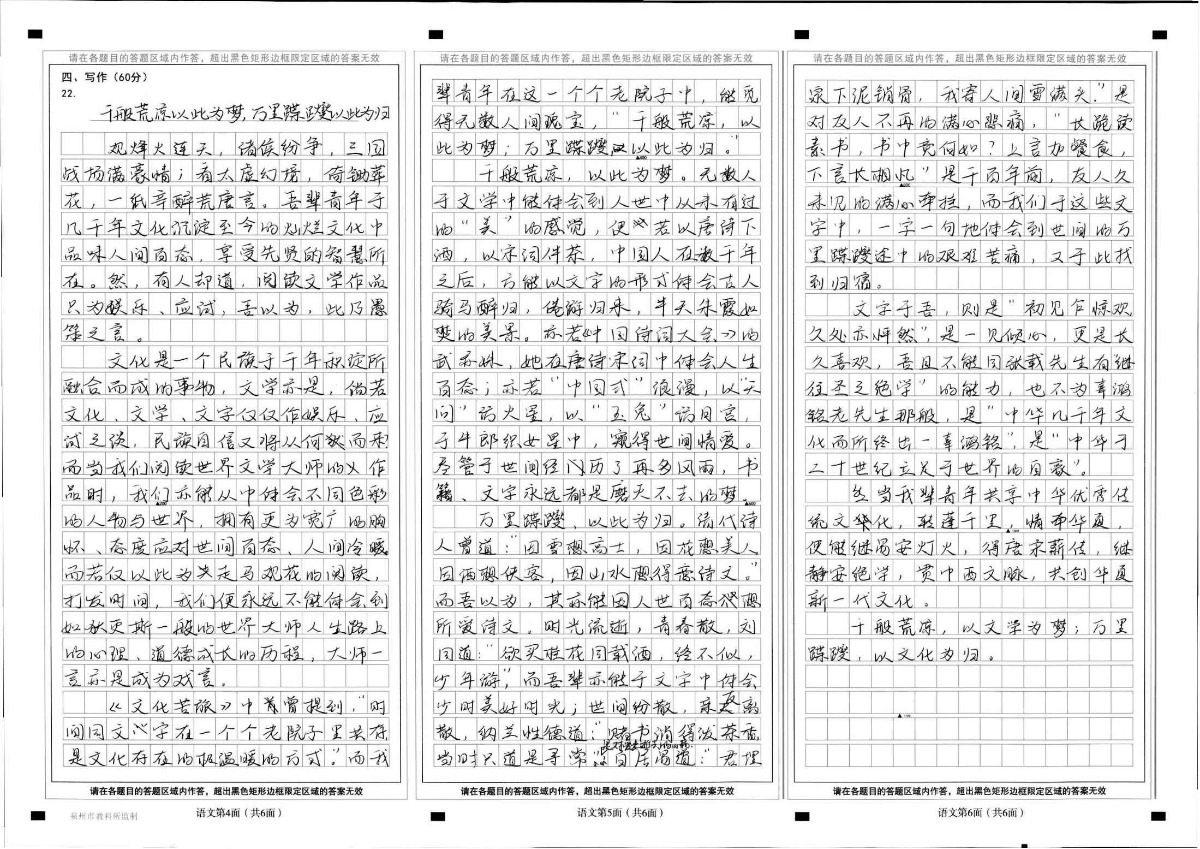 请在各题目的答题区域内作答，超出黑色矩形边框限定区域的答案无效
四、写作（60分）
22.
千般荒凉以此为梦,万里蹀躞以此为归
观烽火连天，诸侯纷争，三国
战场满豪情；看太虚幻境，荷锄葬
花，一纸辛酸荒唐言。吾辈青年于
几千年文化沉淀至今的灿烂文化中
品味人间百态，享受先贤的智慧所
在。然，有人却道，阅读文学作品
只为娱乐、应试，吾以为，此乃愚
笨之言。
文化是一个民族于千年积淀所
融合而成的事物，文学亦是，倘若
文化、文学、文字仅仅作娱乐、应
试之谈，民族自信又将从何处而来
而当我们阅读世界文学大师的作
品时，我们亦能从中体会不同色彩
的人物与世界，拥有更为宽广的胸
怀、态度应对世间百态、人间冷暖
而若仅以此为走马观花的阅读，
打发时间，我们便永远不能体会到
如狄更斯一般的世界大师人生路上
的心理、道德成长的历程，大师一
言亦是成为戏言。
《文化苦旅》中曾提到，“时
间同文字在一个个老院子里共存
是文化存在的极温暖的方式。”而我
请在各题目的答题区域内作答，超出黑色矩形边框限定区域的答案无效
泉州市教科所监制
语文第4面（共6面）
请在各题目的答题区域内作答，超出黑色矩形边框限定区域的答案无效
辈青年在这一个个老院子中，能觅
得无数人间瑰宝，“千般荒凉，以
此为梦；万里蹀躞以此为归。”
千般荒凉，以此为梦。无数人
于文学中能体会到人世中从未有过
的“美”的感觉，便若以唐诗下
酒，以宋词伴茶，中国人在数千年
之后，方能以文字的形式体会古人
骑马醉归，倦游归来，半天朱霞如
焚的美景。亦若《中国诗词大会》的
武亦姝，她在唐诗宋词中体会人生
百态；亦若“中国式”浪漫，以“天
问”访火星，以“玉兔”访月宫，
于牛郎织女星中，窥得世间情爱。
尽管于世间经历了再多风雨，书
籍、文字永远都是磨灭不去的梦。
万里蹀躞，以此为归。清代诗
人曾道：“因雪想高士，因花想美人
因酒想侠客，因山水想得意诗文。”
而吾以为，其亦能因人世百态想
所爱诗文。时光流逝，青春散，刘
同道：“欲买桂花同载酒，终不似，
少年游”，而吾辈亦能于文字中体会
少时美好时光；世间纷散，亲友离
散，纳兰性德道：“赌书消得泼茶香，
当时只道是寻常”白居易道：“君埋
请在各题目的答题区域内作答，超出黑色矩形边框限定区域的答案无效
语文第5面（共6面）
请在各题目的答题区域内作答，超出黑色矩形边框限定区域的答案无效
泉下泥销骨，我寄人间雪满头。”是
对友人不再的满心悲痛，“长跪读
素书，书中竟何如？上言加餐食，
下言长相忆”是千百年前，友人久
未见的满心牵挂，而我们于这些文
字中，一字一句地体会到世间的万
里蹀躞途中的艰难苦痛，又于此找
到归宿。
文字于吾，则是“初见乍惊欢
久处亦怦然”，是一见倾心，更是长
久喜欢，吾且不能同张载先生有“继
往圣之绝学”的能力，也不为辜鸿
铭老先生那般，是“中华几千年文
化而所终出一辜鸿铭”，是“中华于
二十世纪立足于世界的自豪”。
应当我辈青年共享中华优秀传
统文化，联莲千里，情牵华夏，
便能继易安灯火，得唐宋薪传，继
静安绝学，贯中西文脉，共创华夏
新一代文化。
千般荒凉，以文学为梦；万里
蹀躞，以文化为归。
请在各题目的答题区域内作答，超出黑色矩形边框限定区域的答案无效
语文第6面（共6面）